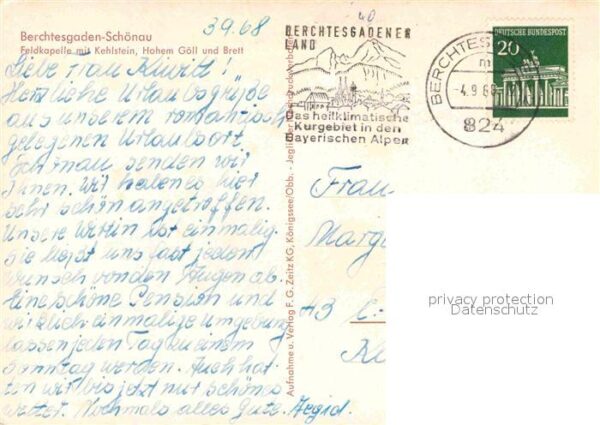 Berchtesgaden-Schönau
Feldkapelle mit Kehlstein, Hohem Göll und Brett
3.9.68
Liebe Frau
Herzliche Urlaubsgrüße
aus unserem romantisch
gelegenen Urlaubsort
Schönau senden wir
Ihnen. Wir haben es hier
sehr schön angetroffen.
Unsere Wirtin ist einmalig.
Sie liest uns fast jeden
Wunsch von den Augen ab.
Eine schöne Pension und
wirklich einmalige Umgebung
lassen jeden Tag zu einem
Sonntag werden. Auch hat-
ten wir bis jetzt nur schönes
Wetter. Nochmals alles Gute. Aegid.
Aufnahme u. Verlag F. G. Zeitz KG, Königssee/Obb. - Jeglicher
BERCHTESGADENER
LAND
Das heilklimatische
Kurgebiet in den
Bayerischen Alpen
BERCHTES
-4.9.68
824
20
DEUTSCHE BUNDESPOST
Frau
Marg
43
privacy protection
Datenschutz